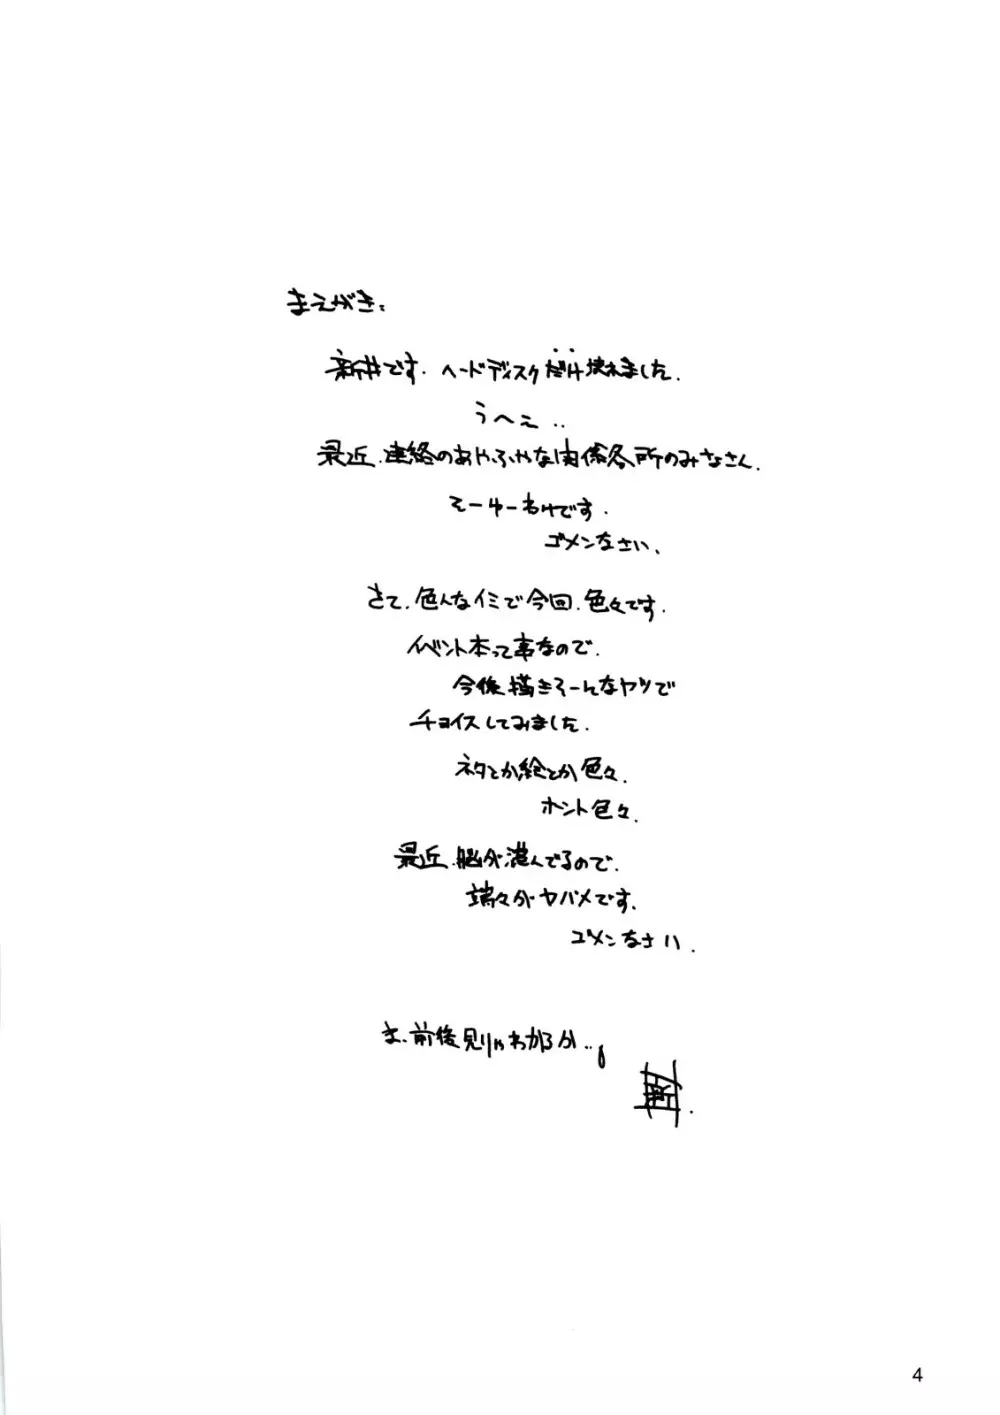 まえがき。
新井です。ハードディスクだけ壊れました。
うへえ..
最近、連絡のあやふやな関係各所のみなさん。
そーゆーわけです。
ゴメンなさい。
さて、色んなイミで今回、色々です。
イベント本って事なので。
今後、描きそーんなヤツで
チョイスしてみました。
ネタとか絵とか色々。
ホント色々。
最近、脳が混んでるので、
端々がヤバメです。
ゴメンなさい。
ま、前後見りゃわかるか..。
4